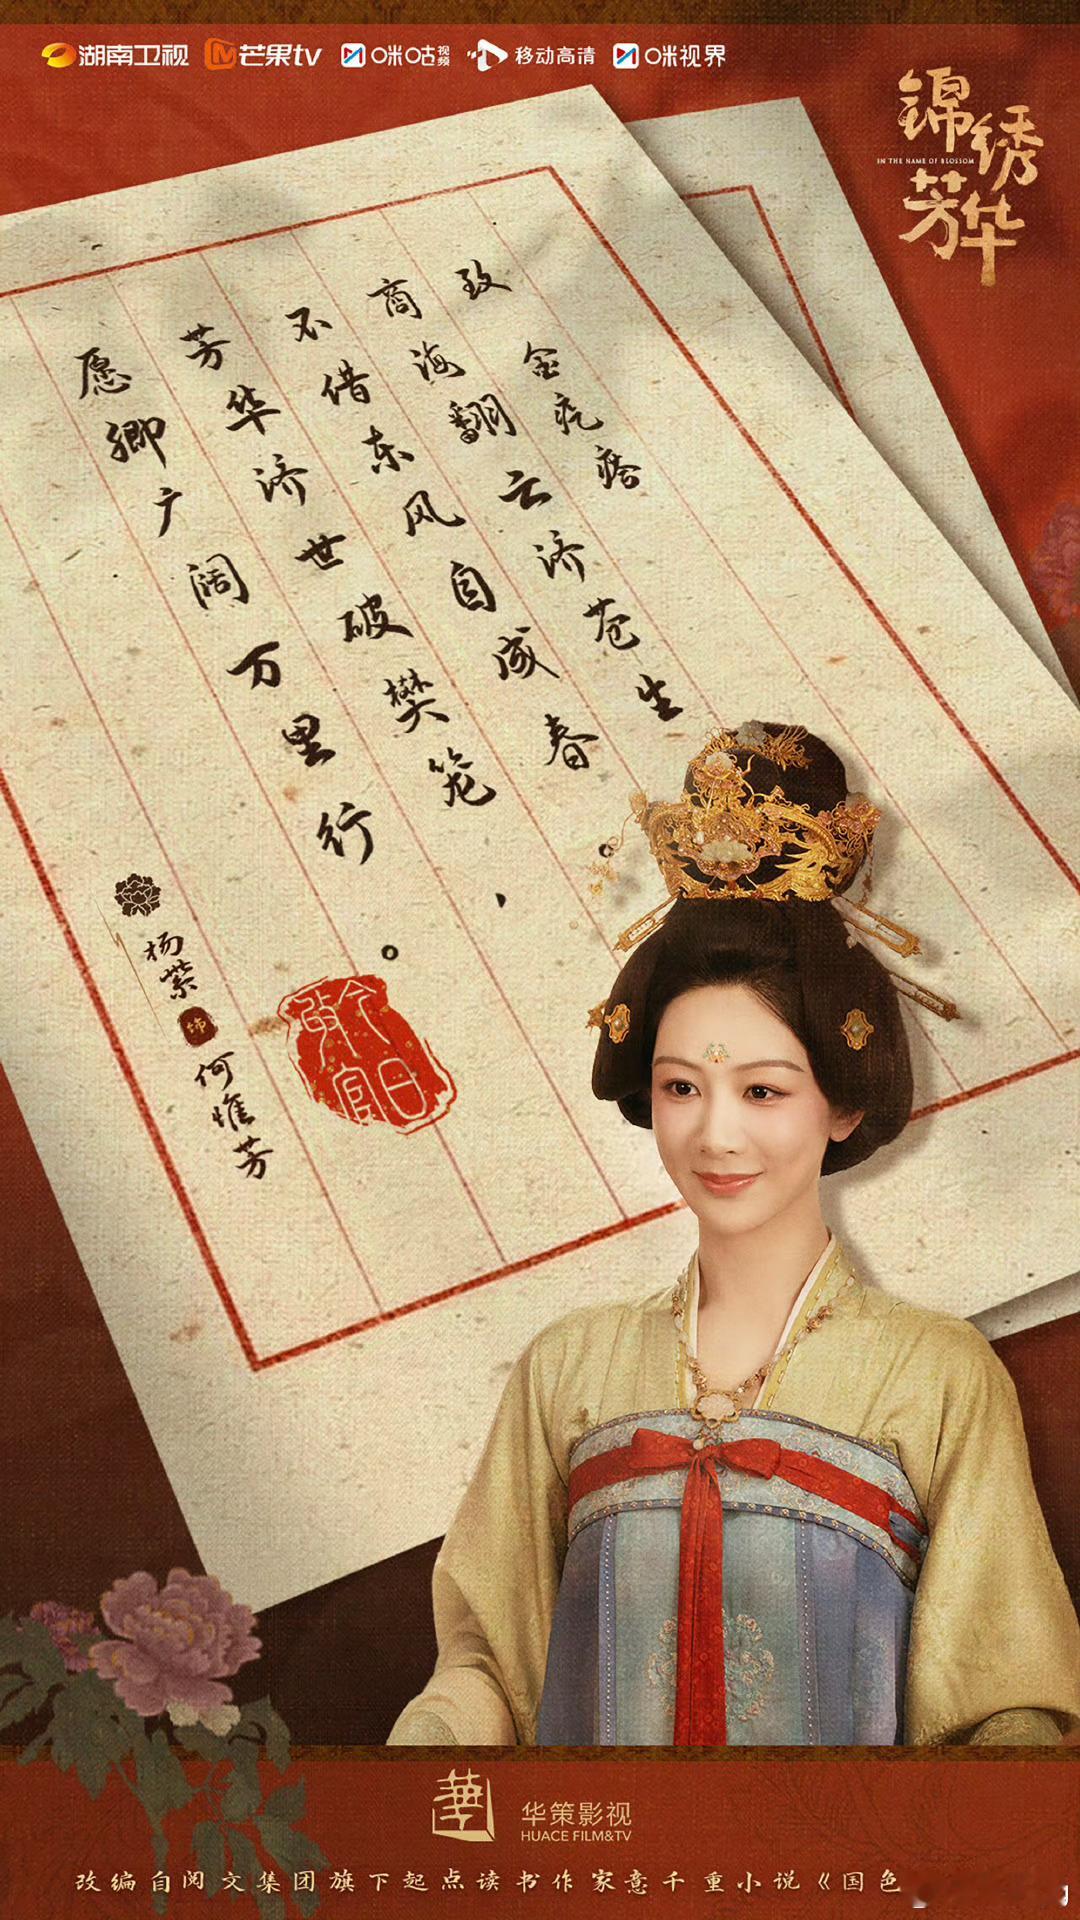 湖南卫视 芒果tv 咪咕视频 移动高清 咪视界
锦绣芳华
IN THE NAME OF BLOSSOM
致
金疙瘩
商海翻云济苍生
不借东风自成春。
芳华济世破樊笼、
愿卿广阔万里行。
杨紫
饰
何惟芳
今日
华
华策影视
HUACE FILM&TV
改编自阅文集团旗下起点读书作家意千重小说《国色